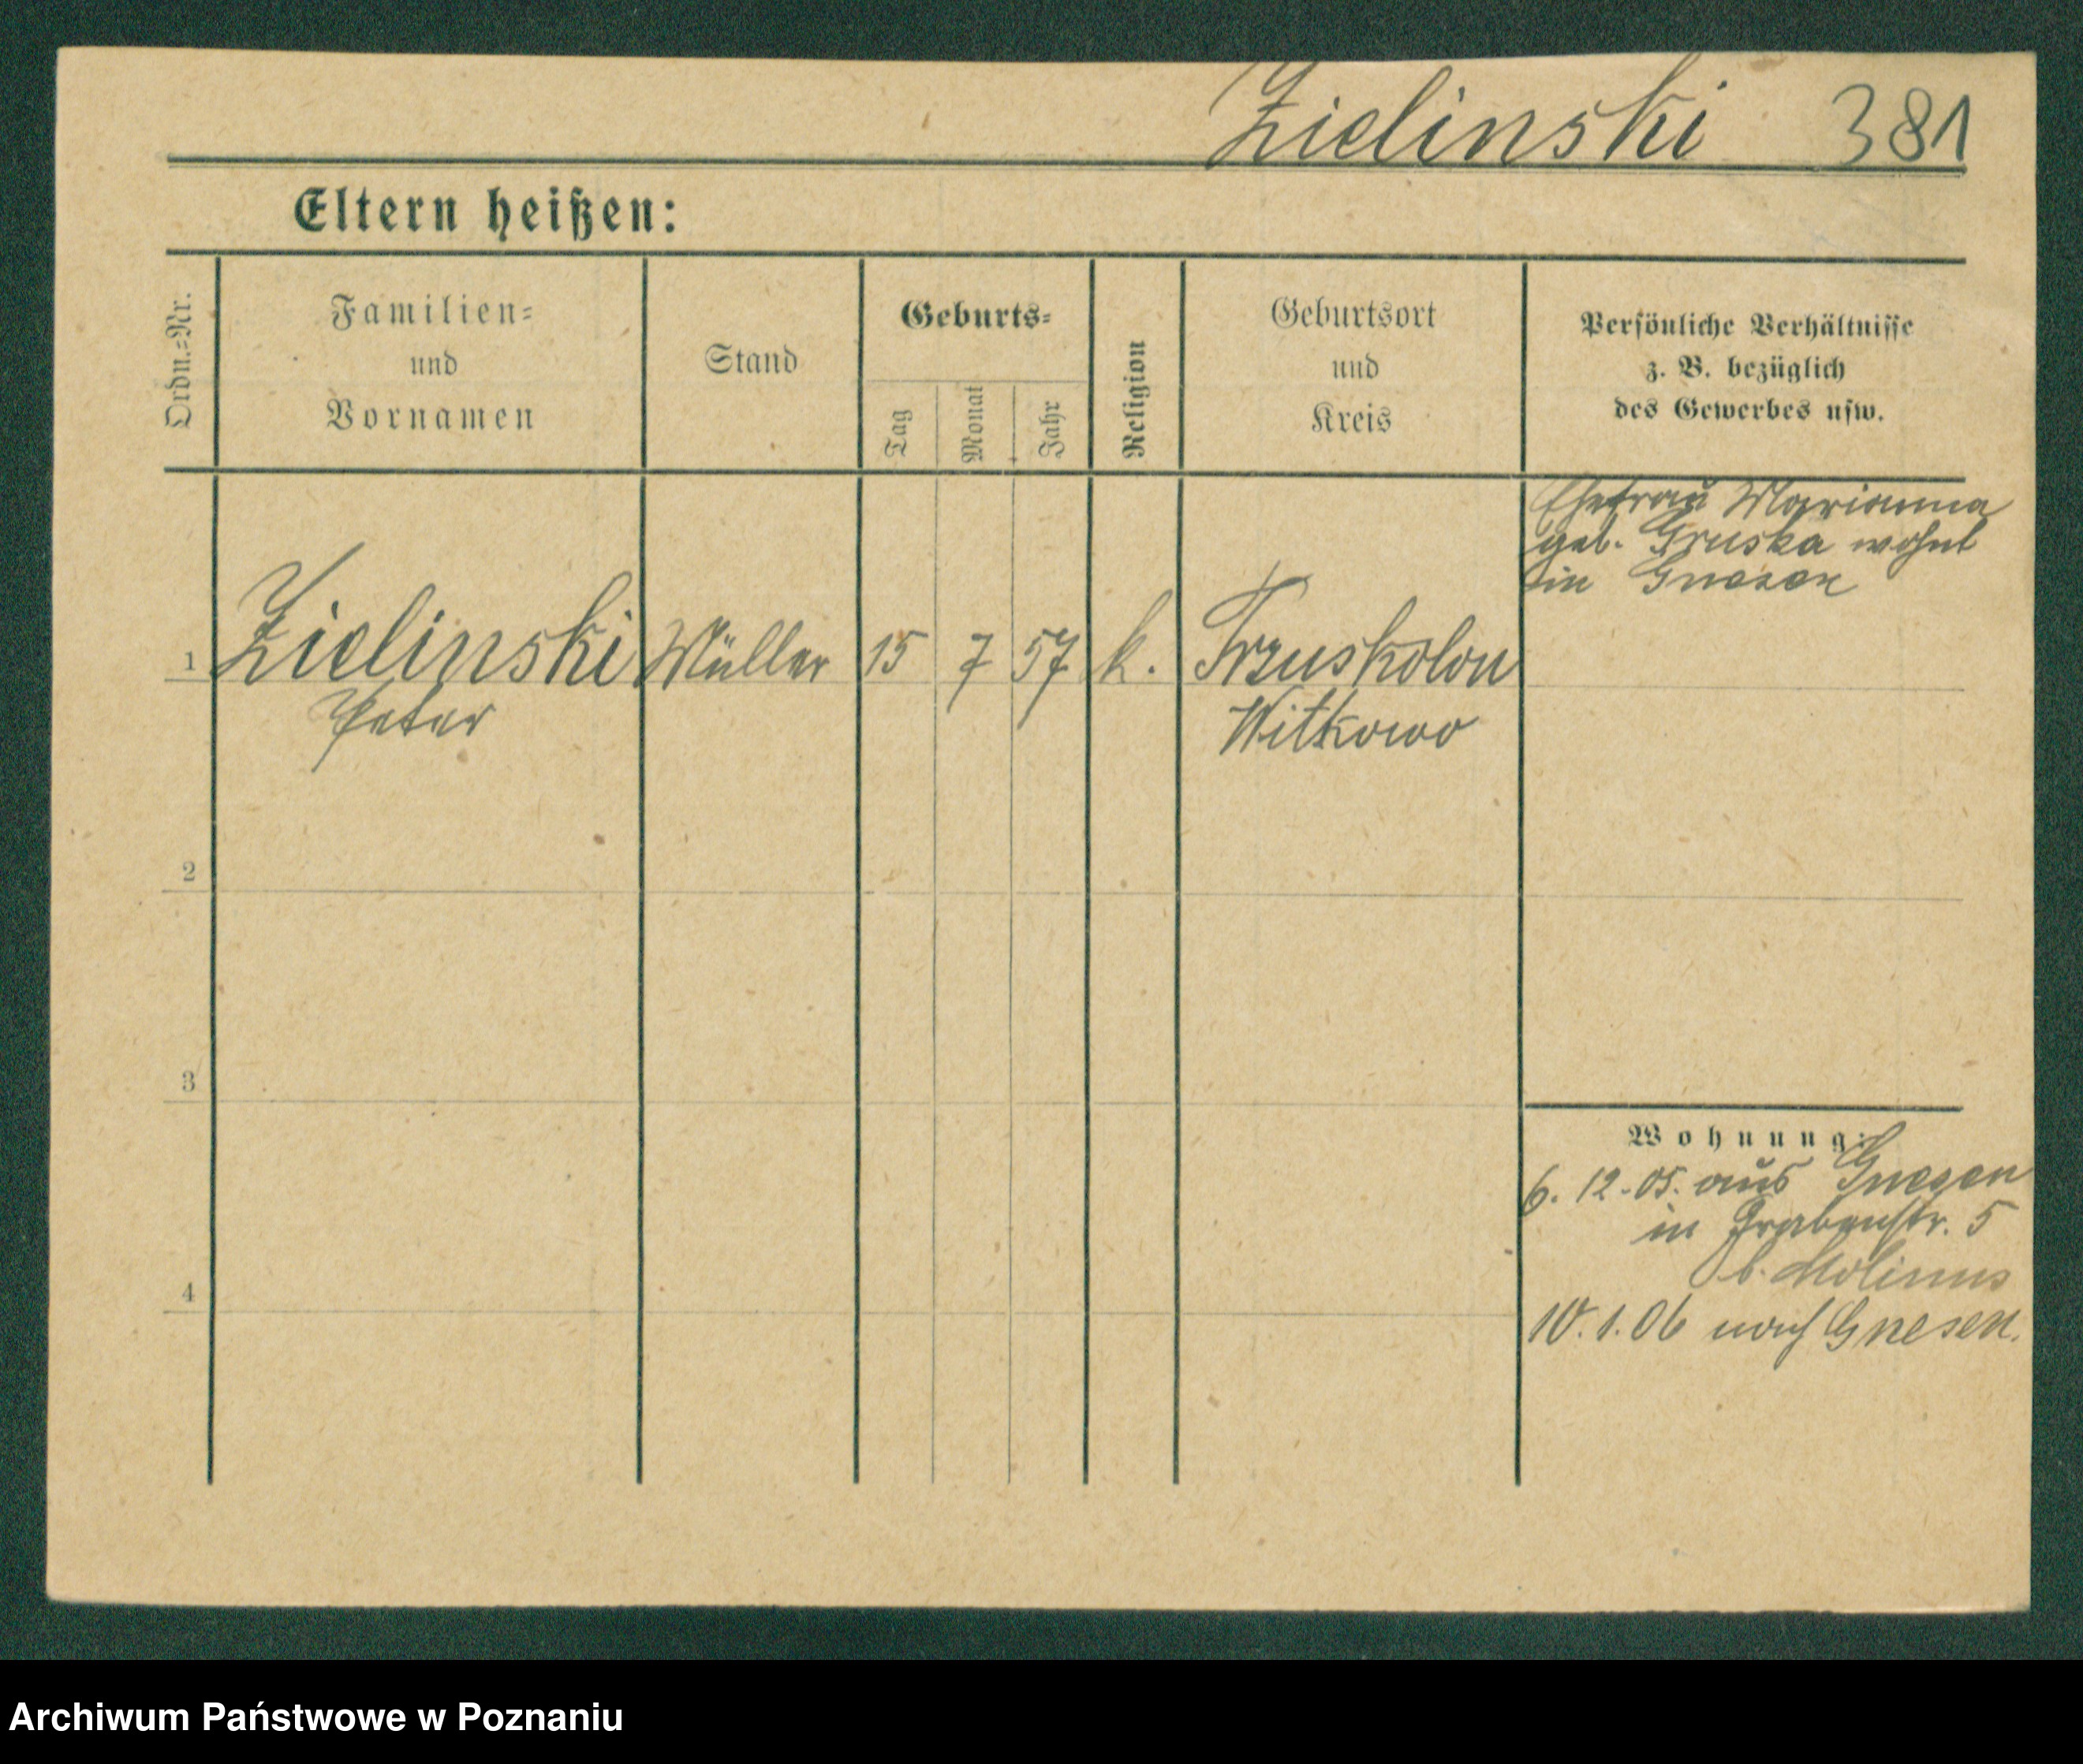 Zielinski 381
Eltern heißen:
Ordn.=Nr.
Familien=
und
Vornamen
Stand
Geburts=
Tag
Monat
Jahr
Religion
Geburtsort
und
Kreis
Persönliche Verhältnisse
z. B. bezüglich
des Gewerbes usw.
Ehefrau Marianna
geb. Gruska wohnt
in Gnesen
1 Zielinski Müller 15 7 57 k. Trzuskolon
Peter Witkowo
2
3
4
Wohnung:
6. 12. 05. aus Gnesen
in Grabenstr. 5
b. Molinus
10. 1. 06 nach Gnesen.
Archiwum Państwowe w Poznaniu